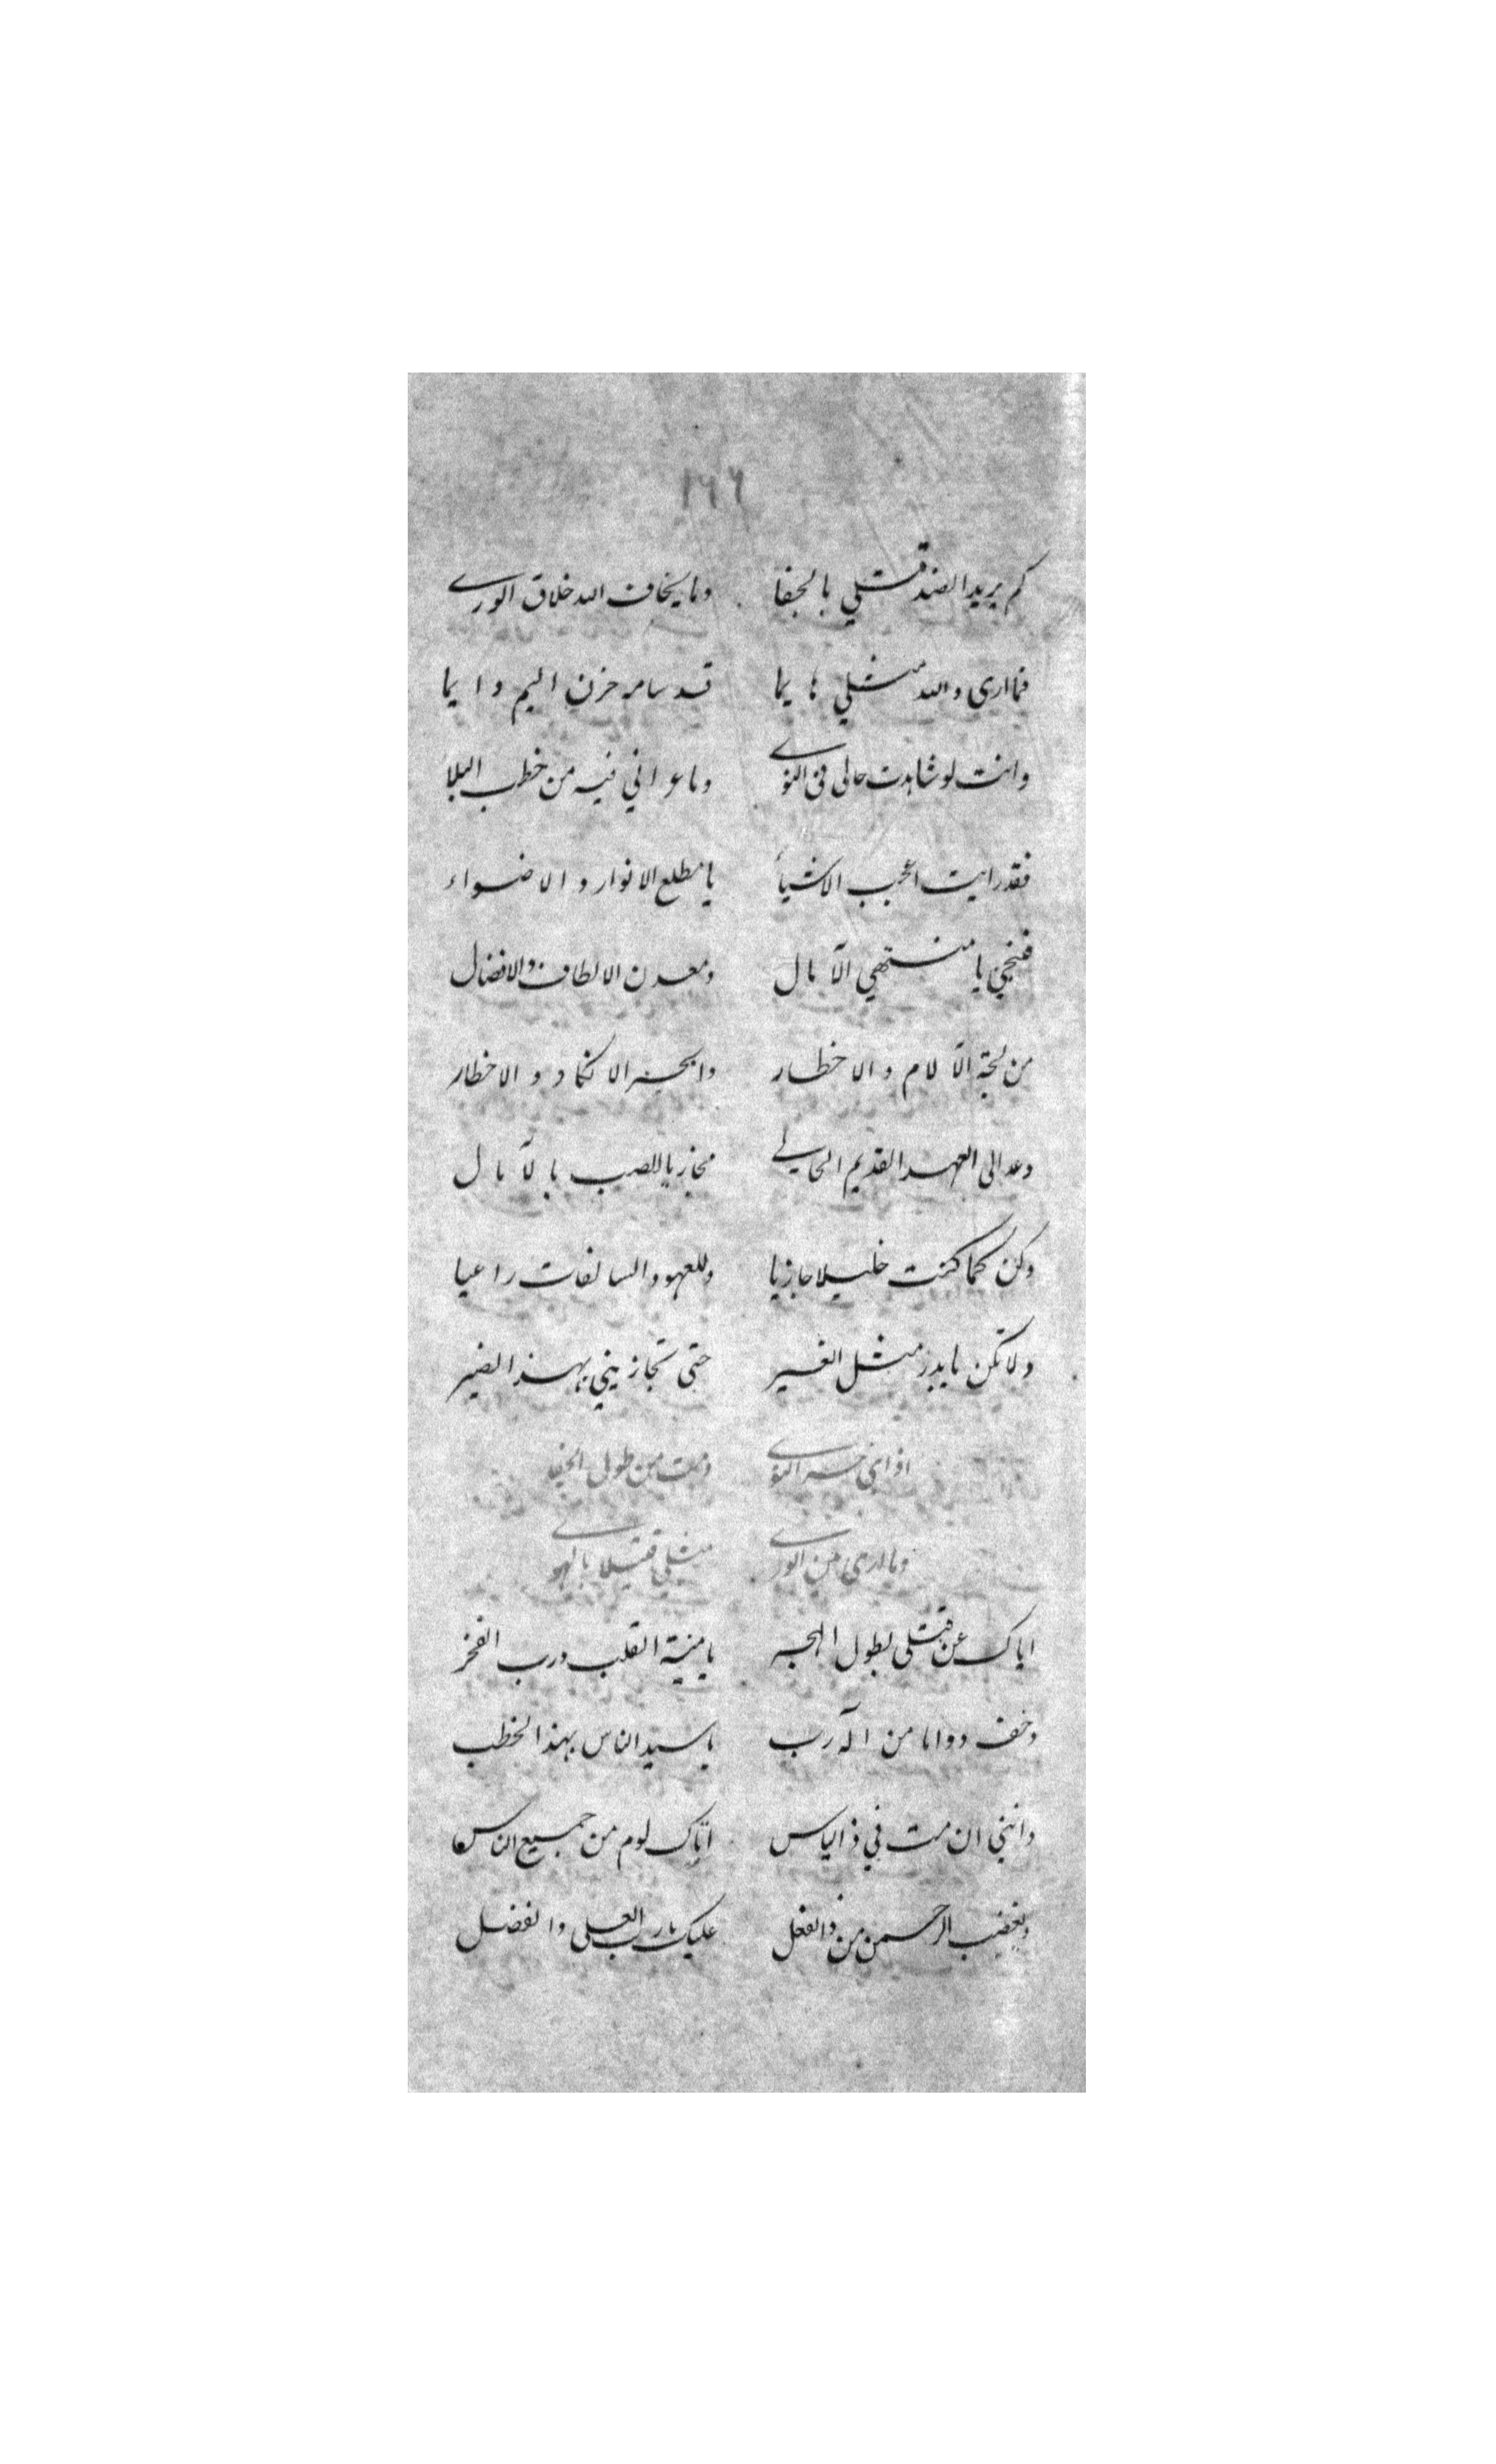 ١٦٦
كم يريد الضد قتلي بالجفا وما يخاف الله خلاق الورى
فما ارى والله مثلي هايما قد سامر حزن اليم وايما
وانت لو شاهدت حالى فى النوى وما عراني فيه من خطب البلا
فقد رايت اعجب الاشياء يا مطلع الانوار والاضواء
فنجني يا منتهي الآمال ومعدن الالطاف والافضال
من لجة الآلام والاخطار وابحر الانكاد والاخطار
وعد الى العهد القديم الحالي مجازيا للصب بالآمال
وكن كما كنت خليلا جازيا وللعهود السالفات راعيا
ولا تكن يا بدر مثل الغير حتى تجازيني بهذا الضير
اذابني حر النوى وذبت من طول الجفا
وما ارى من الورى مثلي قتيلا بالهوى
اياك عن قتلى بطول الهجر يا منية القلب ورب الفخر
وخف دواما من اله رب يا سيد الناس بهذا الخطب
وانني ان مت في ذا الياس اتاك لوم من جميع الناس
ويغضب الرحمن من ذا الفعل عليك يا رب العلى والفضل